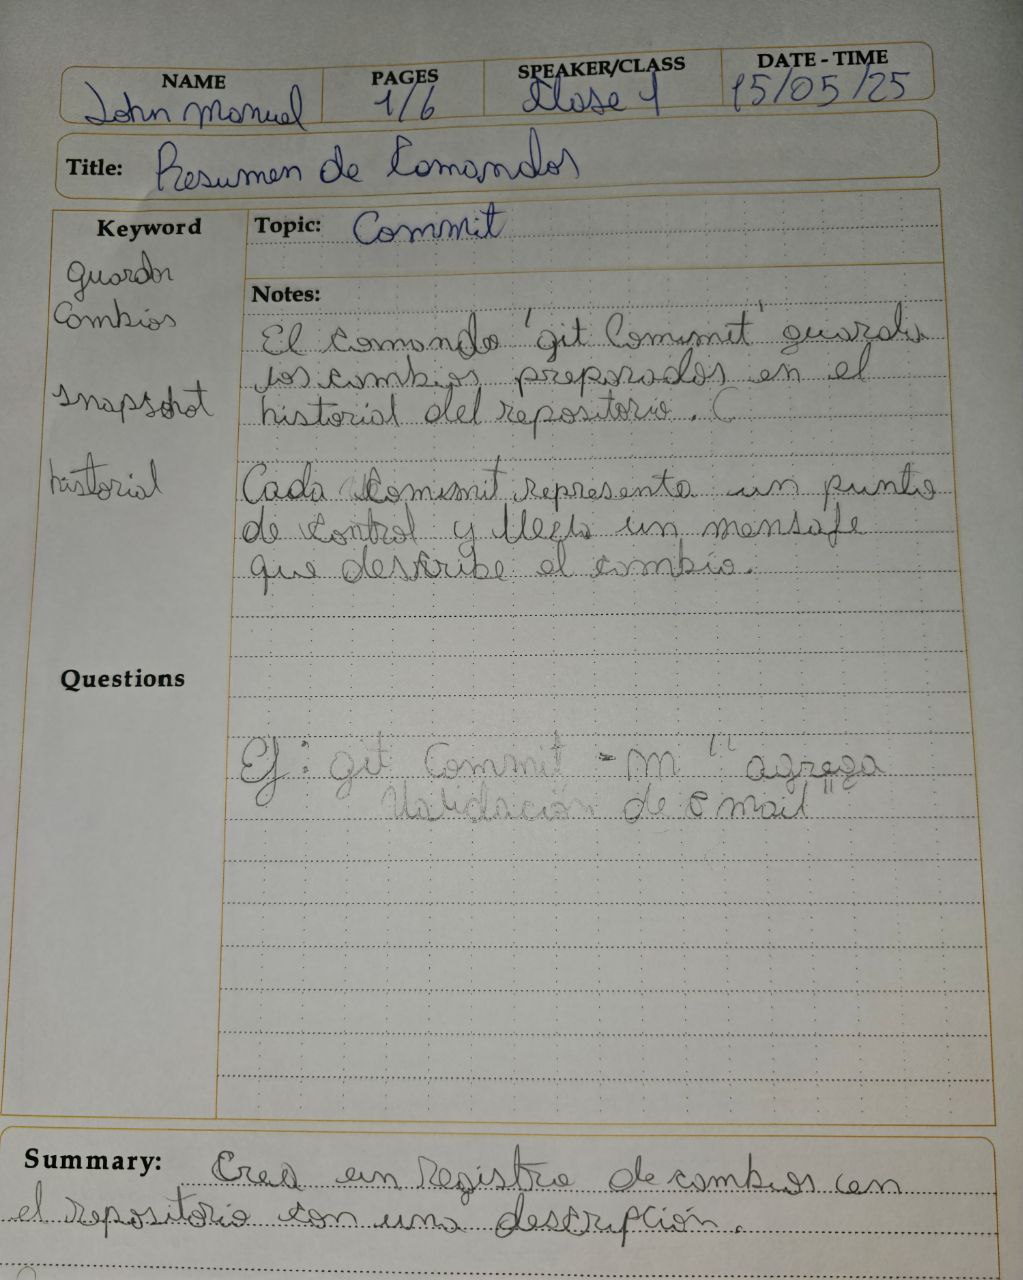 NAME PAGES SPEAKER/CLASS DATE - TIME
John Manuel 1/6 Clase 1 15/05/25
Title: Resumen de Comandos
Keyword
guardar
Cambios
snapshot
historial
Topic: Commit
Notes:
El comando 'git Commit' guarda
los cambios preparados en el
historial del repositorio. (
Cada Commit representa un punto
de control y lleva un mensaje
que describe el cambio.
Questions
Ej: git Commit -m "agrega
Validación de email"
Summary: Crea un registro de cambios en
el repositorio con una descripción.